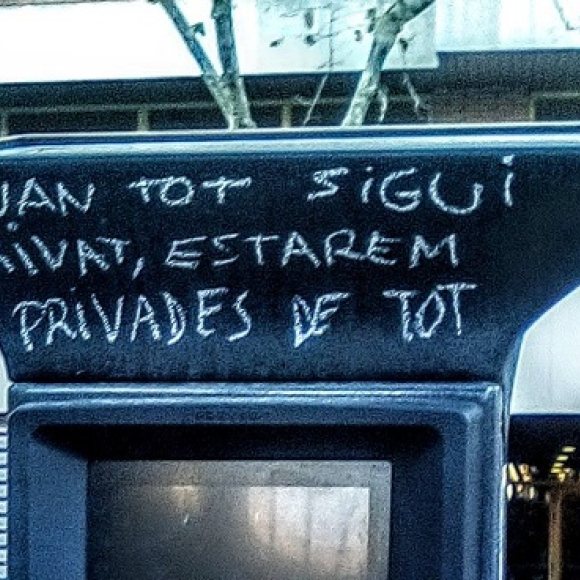 UAN TOT SIGUI
RIVAT, ESTAREM
PRIVADES DE TOT